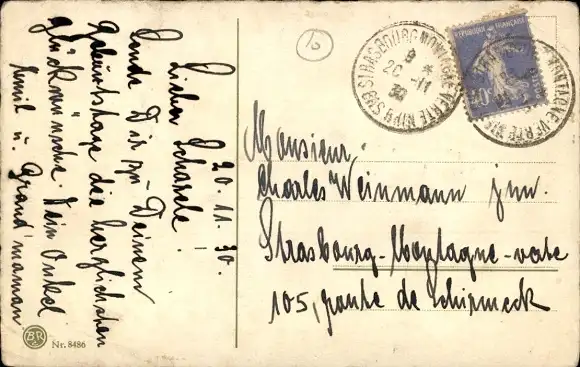 20.11.30.
Lieber Schársele!
Sende Dir zu Deinem
Geburtstage die herzlichsten
glückwünsche. Dein Onkel
Emil u. Grand'maman
Monsieur
Charles Weinmann jun.
Strasbourg-Montagne-verte
105, route de Schirmeck
10
STRASBOURG MONTAGNE VERTE
20 -11
30
REPUBLIQUE FRANÇAISE
40c
MONTAGNE VERTE
BR
Nr. 8486